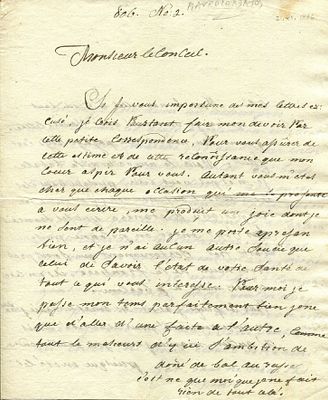 806. No 2.
Monsieur le Conseil.
Si je vous importune des mes lettres ex
cusé, je crois Partout fair mon devoir Par
cette petite Correspondence, Pour vous assurer de
cette estime et de cette reconnaissance que mon
Coeur aspir Pour Vous. Autant vous m'etes
cher que chaque occasion qui se presente
a vous ecrire, me produit un joie dont je
ne sent de pareille. je me porte apresan
bien, et je n'ai aucun autre Soucie que
celui de savoir l'état de votre Santé de
tout ce qui vous interesse. Pour moi je
passe mon tems parfaitement bien je ne
que d'aller d'une faite a l'autre, Comme
tout le malheurs d'ici l'ambition de
doné de bal au
c'est ne que moi que je ne fait
rien de tout cela.